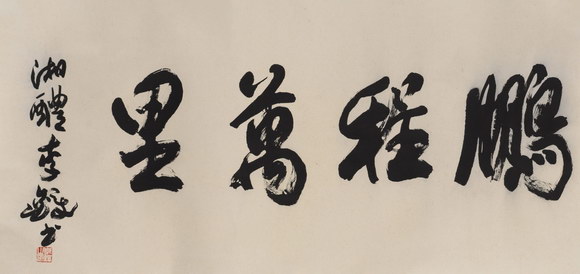 鵬程萬里
湘醴李鐸書